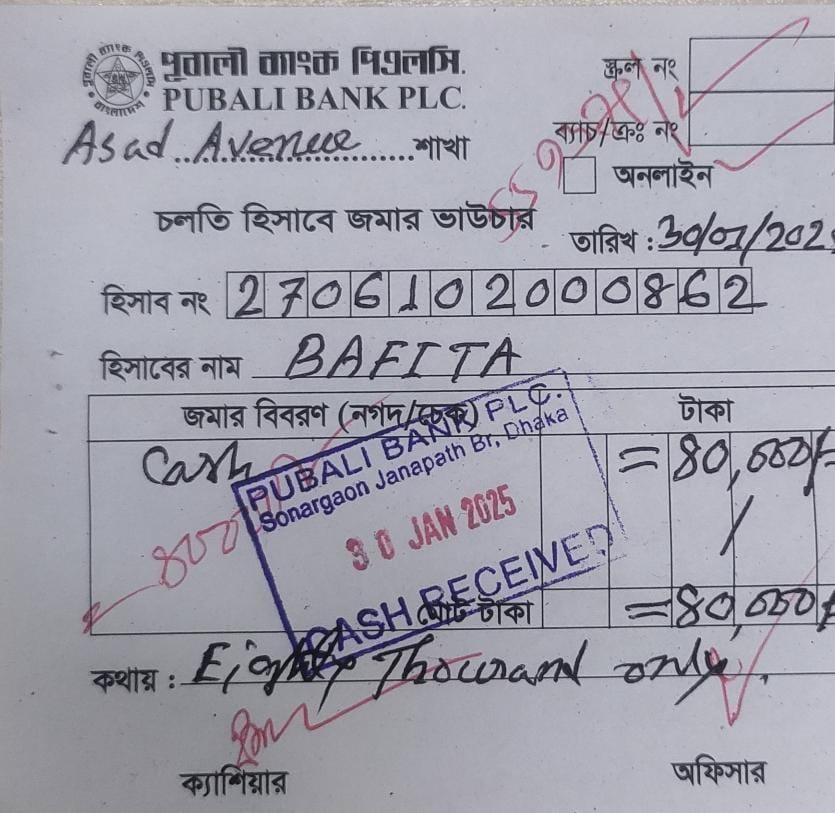 পূবালী ব্যাংক পিএলসি.
PUBALI BANK PLC.
Asad Avenue শাখা
স্ক্রল নং
ব্যাচ/ক্রঃ নং
অনলাইন
চলতি হিসাবে জমার ভাউচার
তারিখ : 30/01/202
হিসাব নং 2706102000862
হিসাবের নাম BAFITA
জমার বিবরণ (নগদ/চেক) টাকা
Cash = 80,000/=
PUBALI BANK PLC.
Sonargaon Janapath Br, Dhaka
30 JAN 2025
CASH RECEIVED
মোট টাকা = 80,000/=
কথায় : Eighty Thousand only.
ক্যাশিয়ার অফিসার